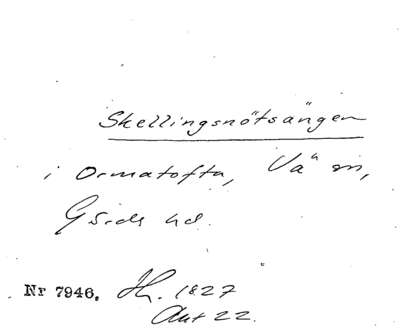 Skellingsnötsängen
i Ormatofta, Vä sn,
Gärds hd.
Nr 7946. Th. 1827
Akt 22.